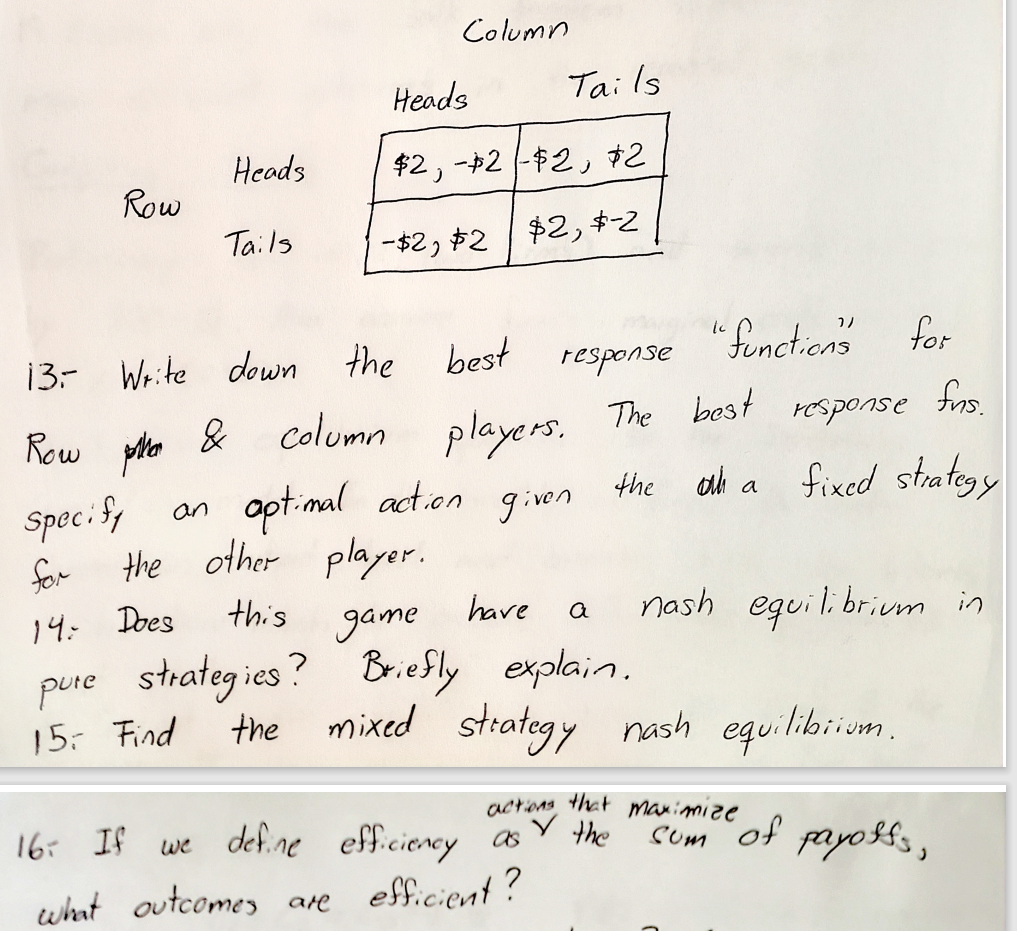 Column
Heads Tails
Heads $2, -$2 -$2, $2
Row
Tails -$2, $2 $2, $-2
13:- Write down the best response "functions" for
Row & column players. The best response fns.
specify an optimal action given the a fixed strategy
for the other player.
14:- Does this game have a nash equilibrium in
pure strategies? Briefly explain.
15:- Find the mixed strategy nash equilibrium.
actions that maximize
16:- If we define efficiency as the sum of payoffs,
what outcomes are efficient?